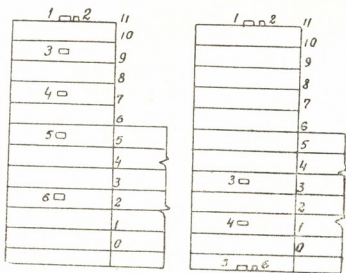 1 2 11
10
3 9
8
4 7
6
5 5
4
3
6 2
1
0
1 2 11
10
9
8
7
6
5
4
3 3
2
4 1
0
5 6